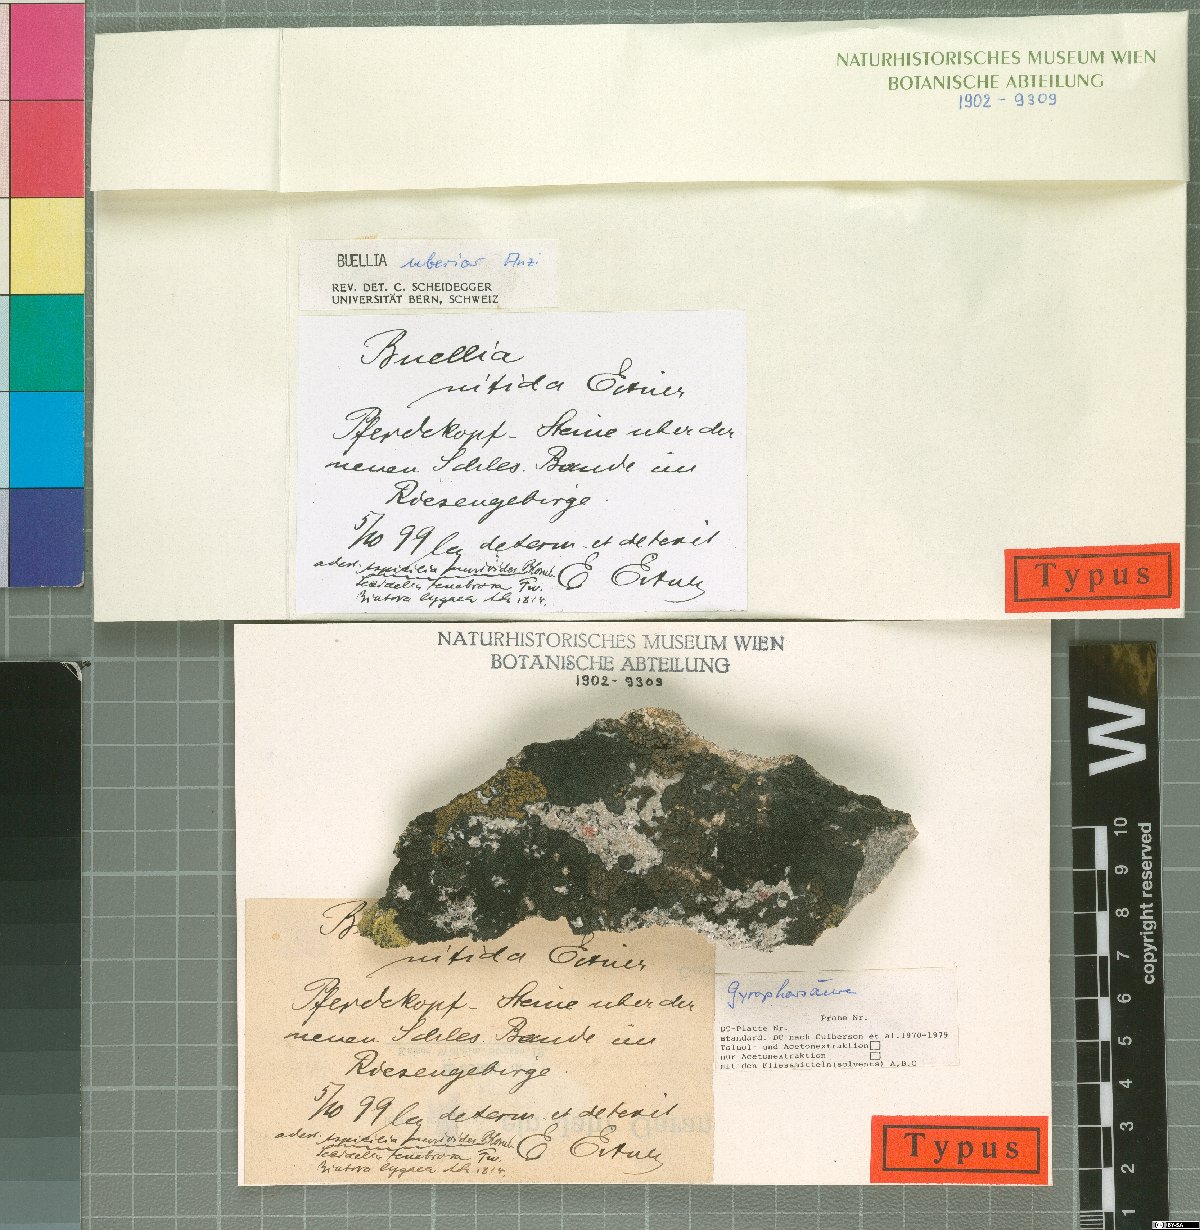 NATURHISTORISCHES MUSEUM WIEN
BOTANISCHE ABTEILUNG
1902 - 9309
BUELLIA uberior Anzi
REV. DET. C. SCHEIDEGGER
UNIVERSITÄT BERN, SCHWEIZ
Buellia
nitida Eitner
Pferdekopf - Steine über der
neuen Schles. Baude im
Riesengebirge.
5/10 99 leg determ. et detexit
E Eitner
Typus
NATURHISTORISCHES MUSEUM WIEN
BOTANISCHE ABTEILUNG
1902 - 9309
W
10
9
8
7
6
5
4
3
2
1
copyright reserved
B
nitida Eitner
Pferdekopf - Steine über der
neuen Schles. Baude im
Riesengebirge.
5/10 99 leg determ. et detexit
E Eitner
Gyrophorsäure
Probe Nr.
DC-Platte Nr.
Standard. DC nach Culberson et al. 1970-1979
Toluol- und Acetonextraktion
nur Acetonextraktion
mit den Fliessmitteln(solvents) A,B,C
Typus
BY-SA